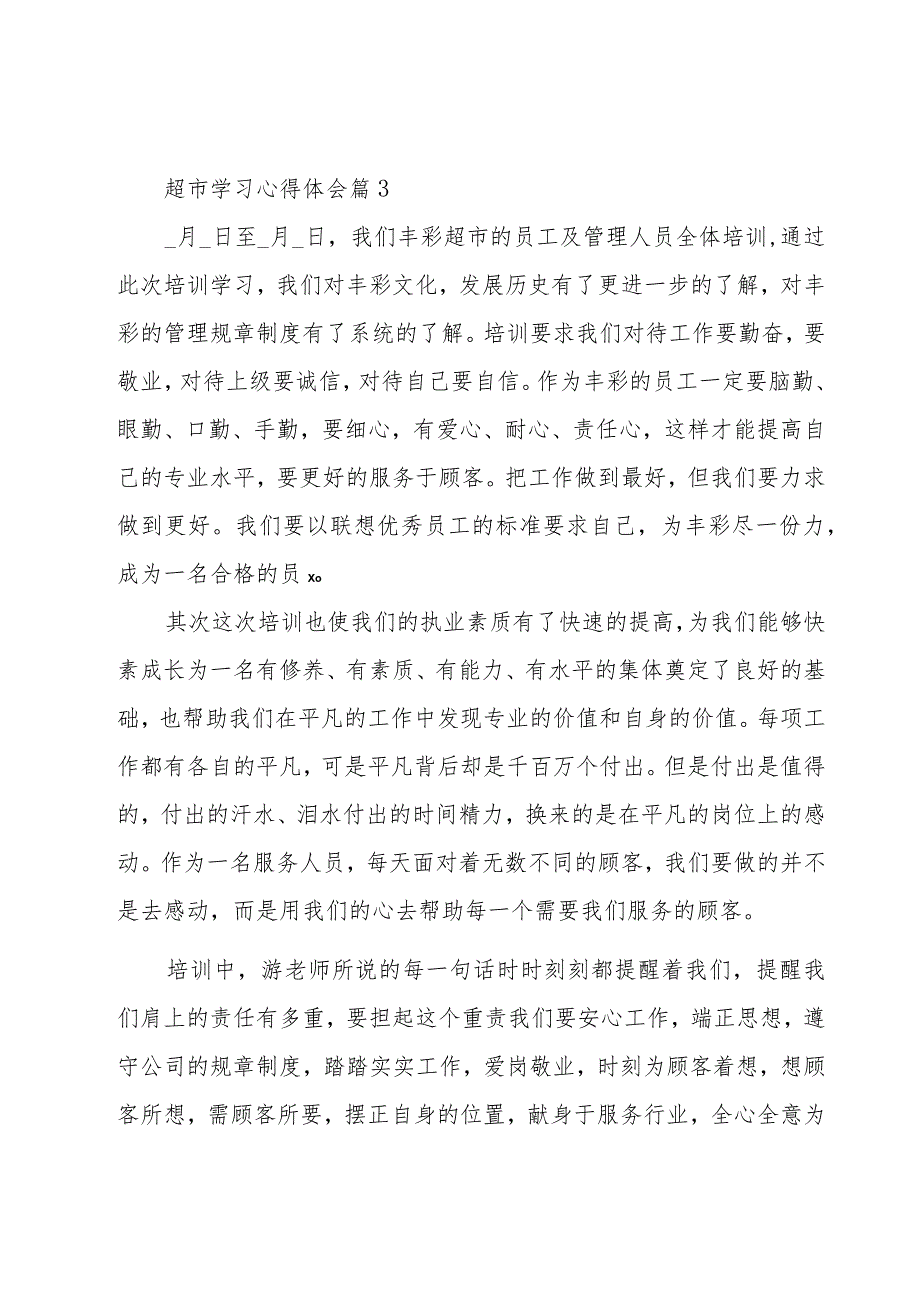 超市学习心得体会篇3
_月_日至_月_日，我们丰彩超市的员工及管理人员全体培训,通过
此次培训学习，我们对丰彩文化，发展历史有了更进一步的了解，对丰
彩的管理规章制度有了系统的了解。培训要求我们对待工作要勤奋，要
敬业，对待上级要诚信，对待自己要自信。作为丰彩的员工一定要脑勤、
眼勤、口勤、手勤，要细心，有爱心、耐心、责任心，这样才能提高自
己的专业水平，要更好的服务于顾客。把工作做到最好，但我们要力求
做到更好。我们要以联想优秀员工的标准要求自己，为丰彩尽一份力，
成为一名合格的员xo
其次这次培训也使我们的执业素质有了快速的提高，为我们能够快
素成长为一名有修养、有素质、有能力、有水平的集体奠定了良好的基
础，也帮助我们在平凡的工作中发现专业的价值和自身的价值。每项工
作都有各自的平凡，可是平凡背后却是千百万个付出。但是付出是值得
的，付出的汗水、泪水付出的时间精力，换来的是在平凡的岗位上的感
动。作为一名服务人员，每天面对着无数不同的顾客，我们要做的并不
是去感动，而是用我们的心去帮助每一个需要我们服务的顾客。
培训中，游老师所说的每一句话时时刻刻都提醒着我们，提醒我
们肩上的责任有多重，要担起这个重责我们要安心工作，端正思想，遵
守公司的规章制度，踏踏实实工作，爱岗敬业，时刻为顾客着想，想顾
客所想，需顾客所要，摆正自身的位置，献身于服务行业，全心全意为